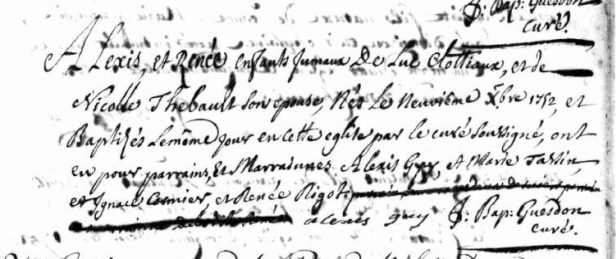 J: Bap: Guesdon
curé.
Alexis, et Renée enfants jumeaux De Luc Clottiaux, et de
Nicolle Thebault son epouse, Nés Le Neuvième Xbre 1752, et
Baptizés Lemême Jour en cette eglise par le curé soussigné, ont
eu pour parrains, Et Marraines Alexis Guy, et Marie Taslin,
et Ignace Cosnier, et Renée Rigot.
alexis guy J: Bap: Guesdon
curé.